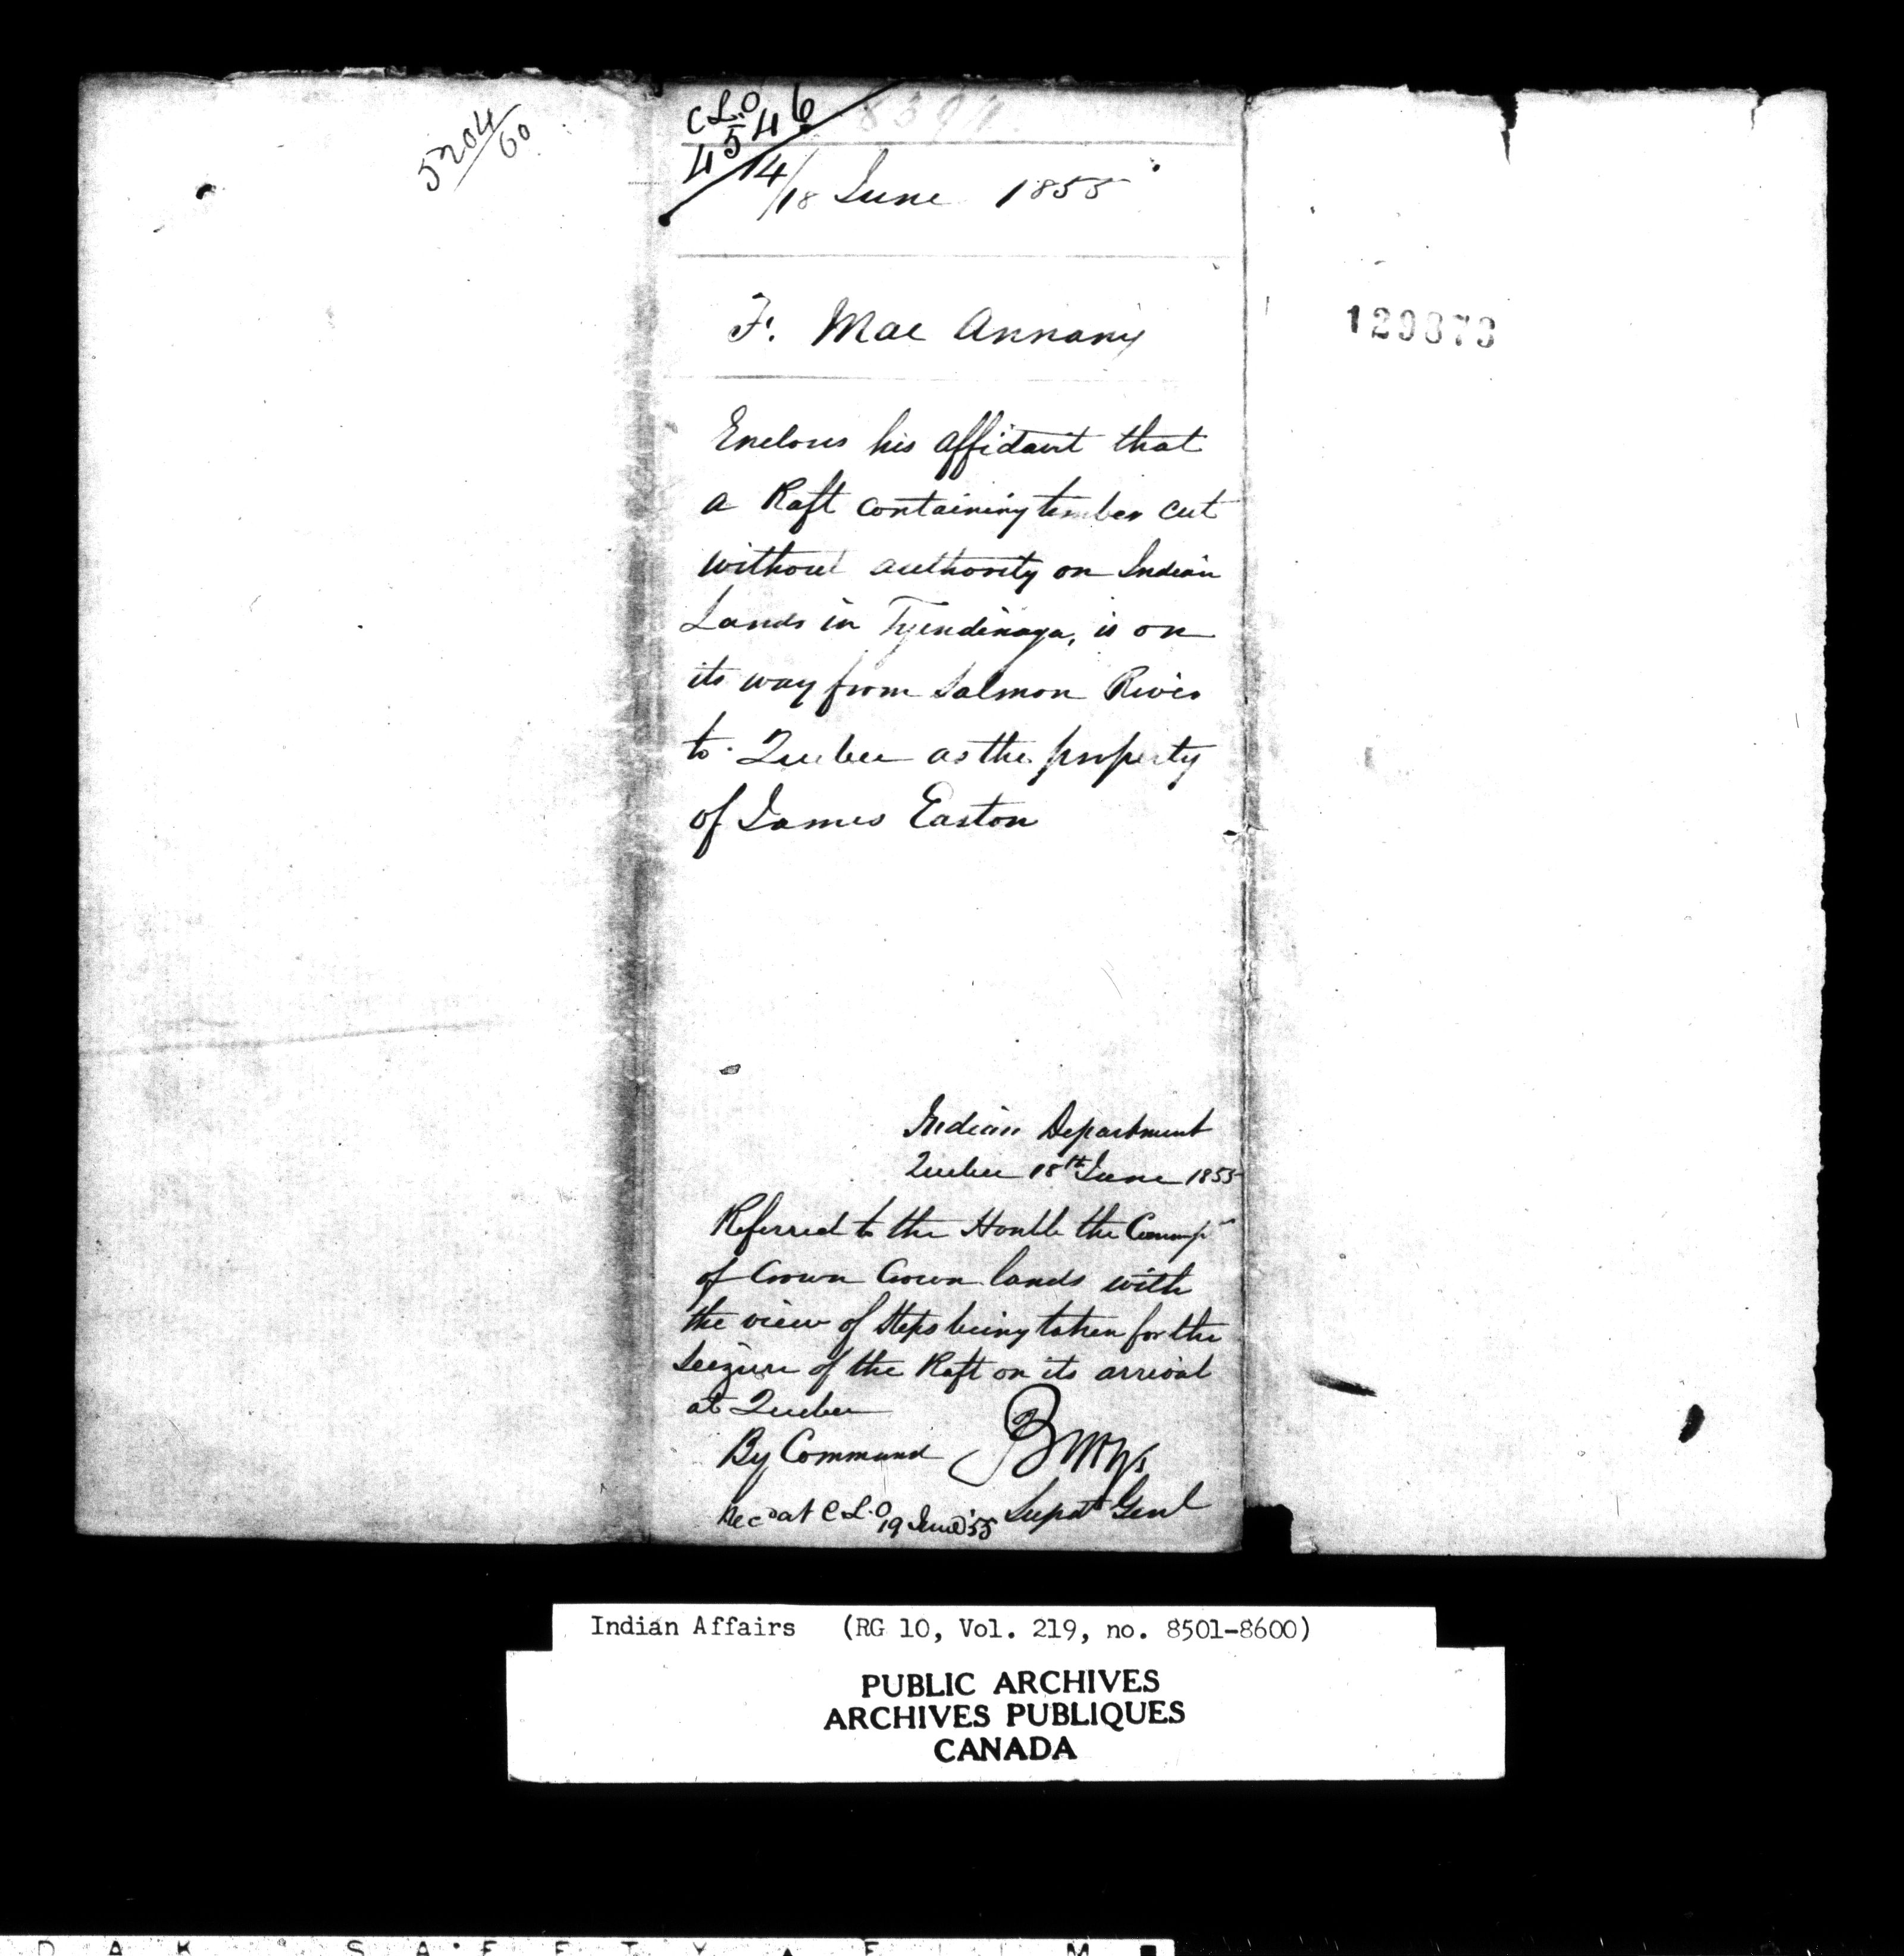 5204/60
C.L.O
4546
14/18 June 1855
F. Mac Annany
Encloses his affidavit that
a Raft containing timber cut
without authority on Indian
Lands in Tyendinaga, is on
its way from Salmon River
to Quebec as the property
of James Easton
Indian Department
Quebec 18th June 1855
Referred to the Honble the
of Crown Crown lands with
the view of steps being taken for the
seizure of the Raft on its arrival
at Quebec
By Command
Supt Genl
Recd at C.L.O 19 June '55
Indian Affairs (RG 10, Vol. 219, no. 8501-8600)
PUBLIC ARCHIVES
ARCHIVES PUBLIQUES
CANADA